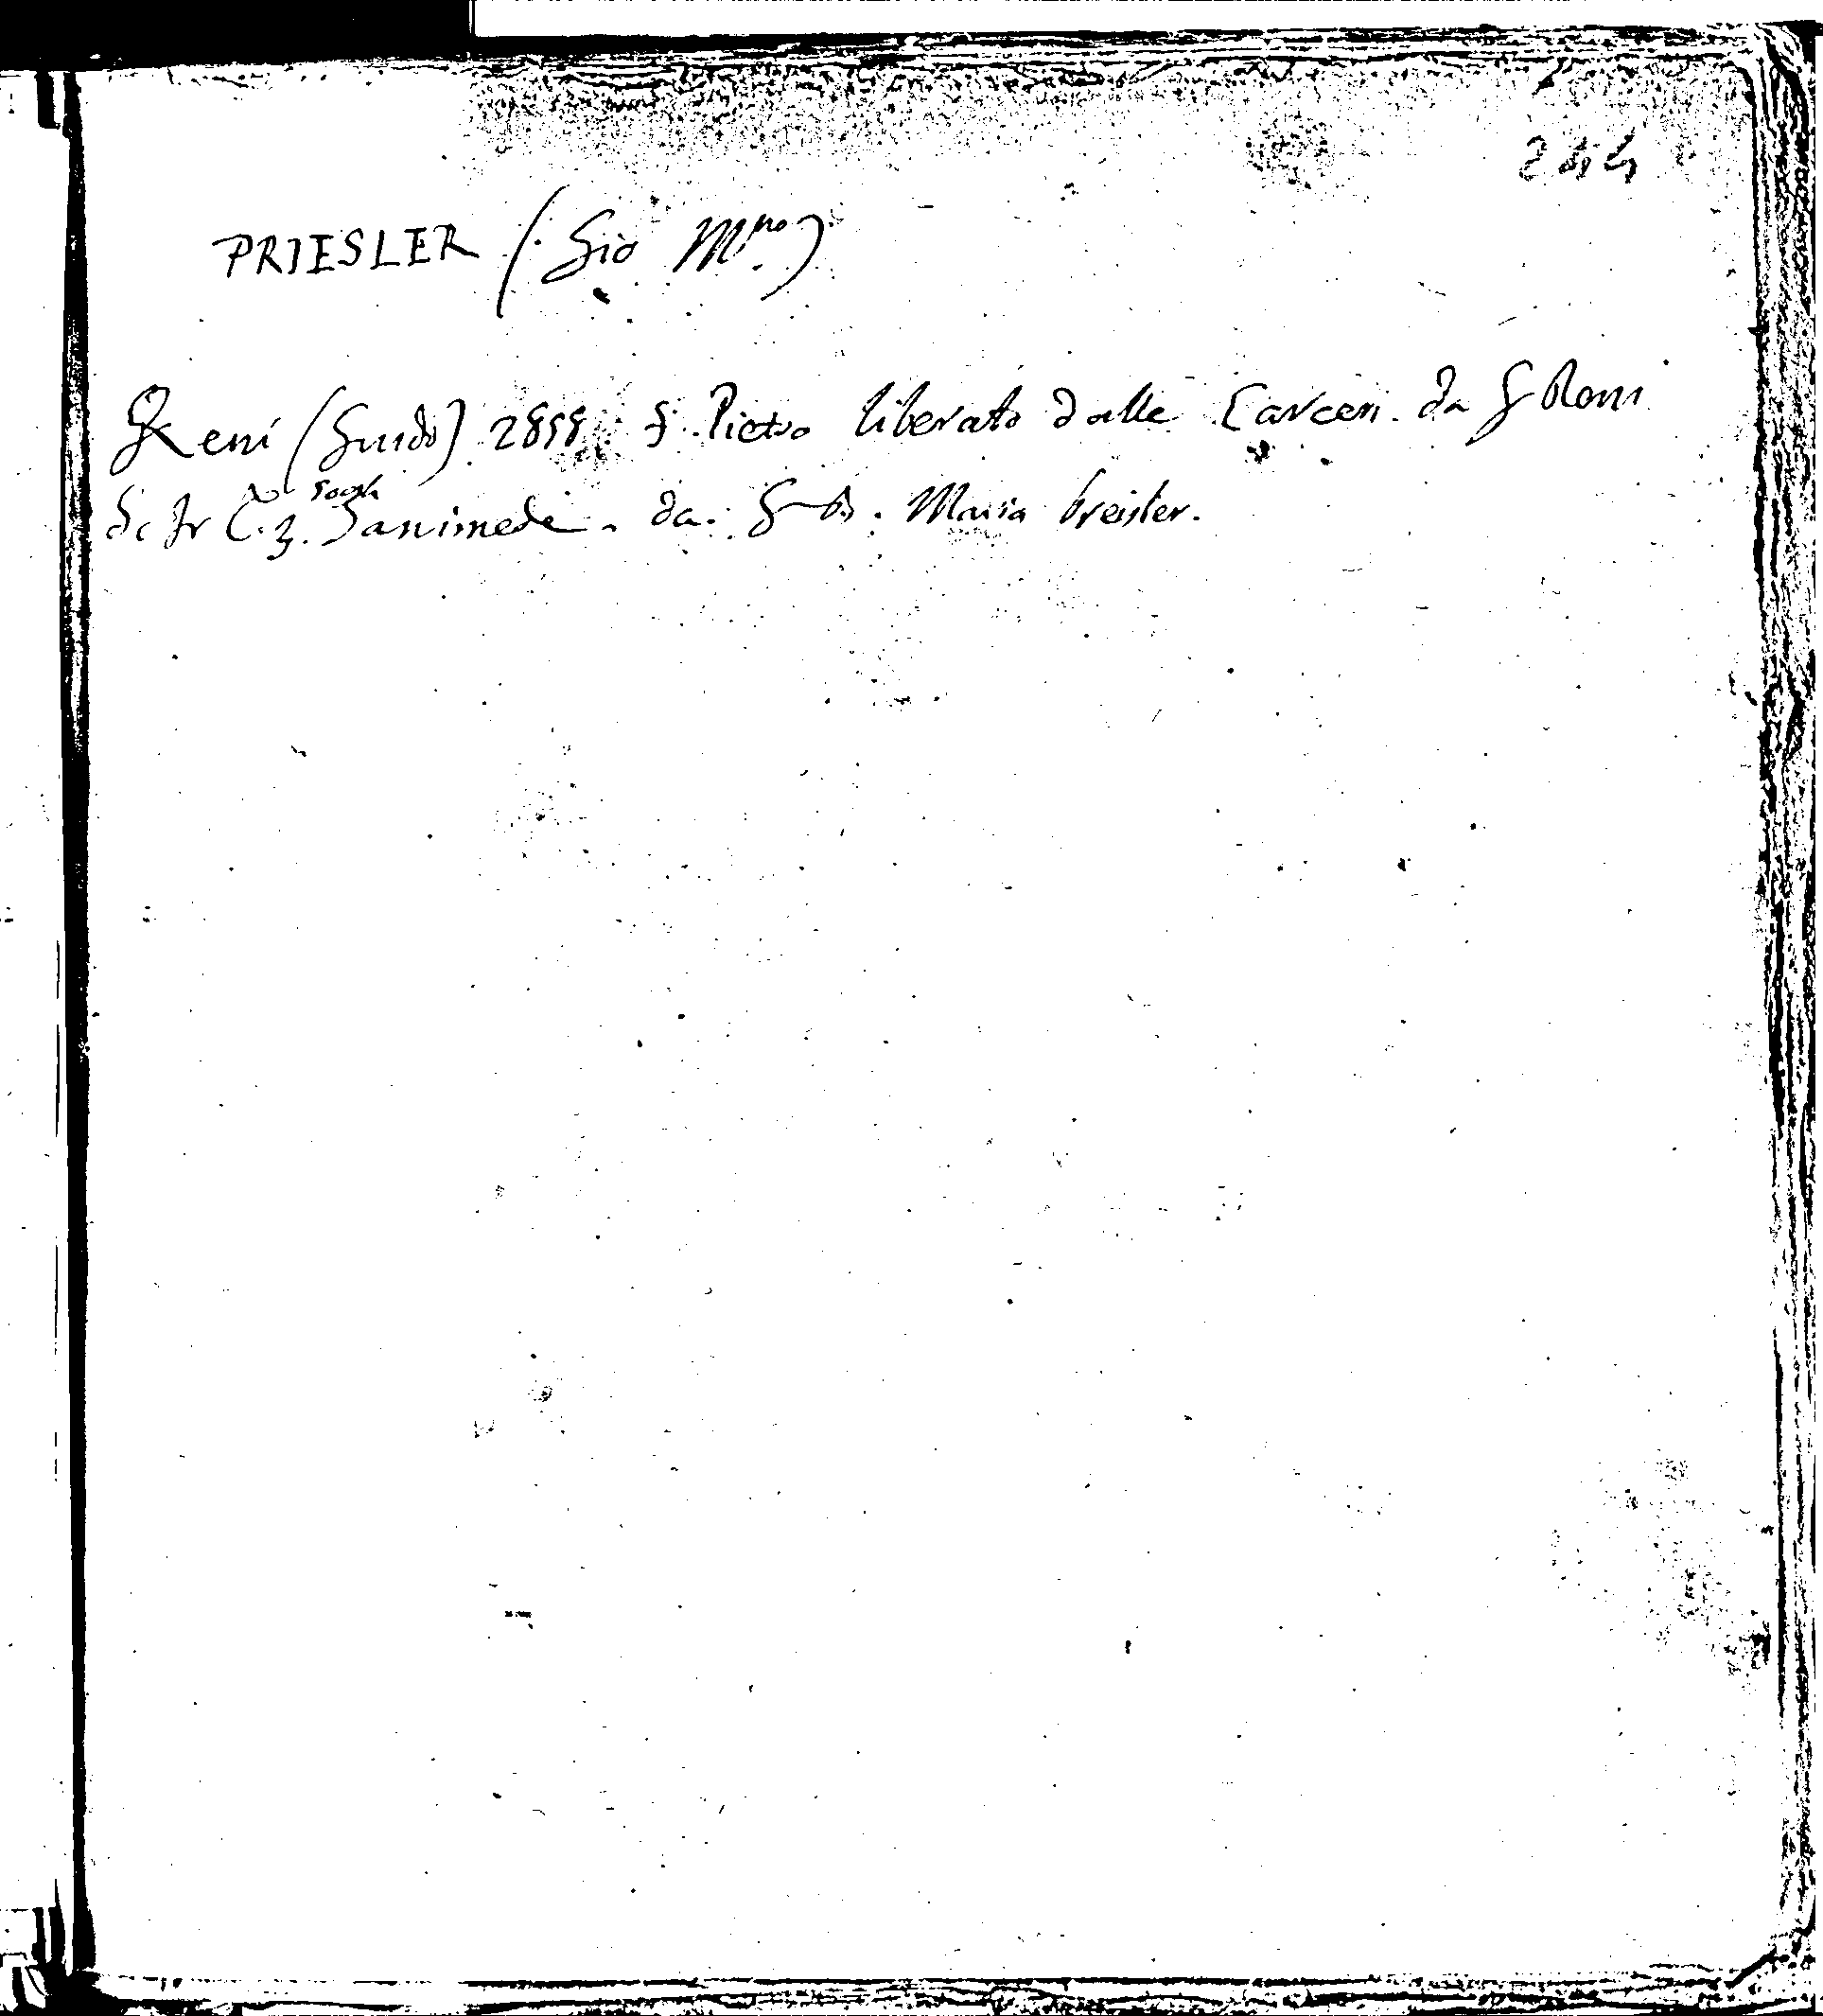 244
PRIESLER (Gio Mno)
Reni (Guido) 2898. S. Pietro liberato dalle Carceri. da G Reni
C. 3. Ganimede. da. G B. Maria Preisler.